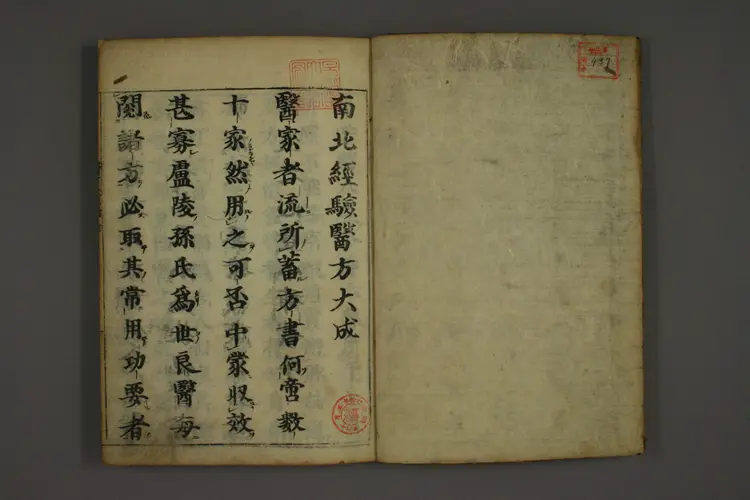 南北經驗醫方大成
醫家者流所蓄方書何啻數
十家然用之可否中衆収效
甚寡盧陵孫氏爲世良醫每
閱諸方必取其常用功要者